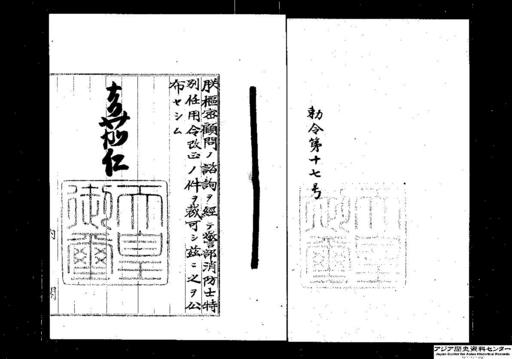 勅令第十七号
朕樞密顧問ノ諮詢ヲ經テ警部消防士特
別任用令改正ノ件ヲ裁可シ玆ニ之ヲ公
布セシム
嘉仁
天皇
御璽
内
閣
アジア歴史資料センター
Japan Center for Asian Historical Records